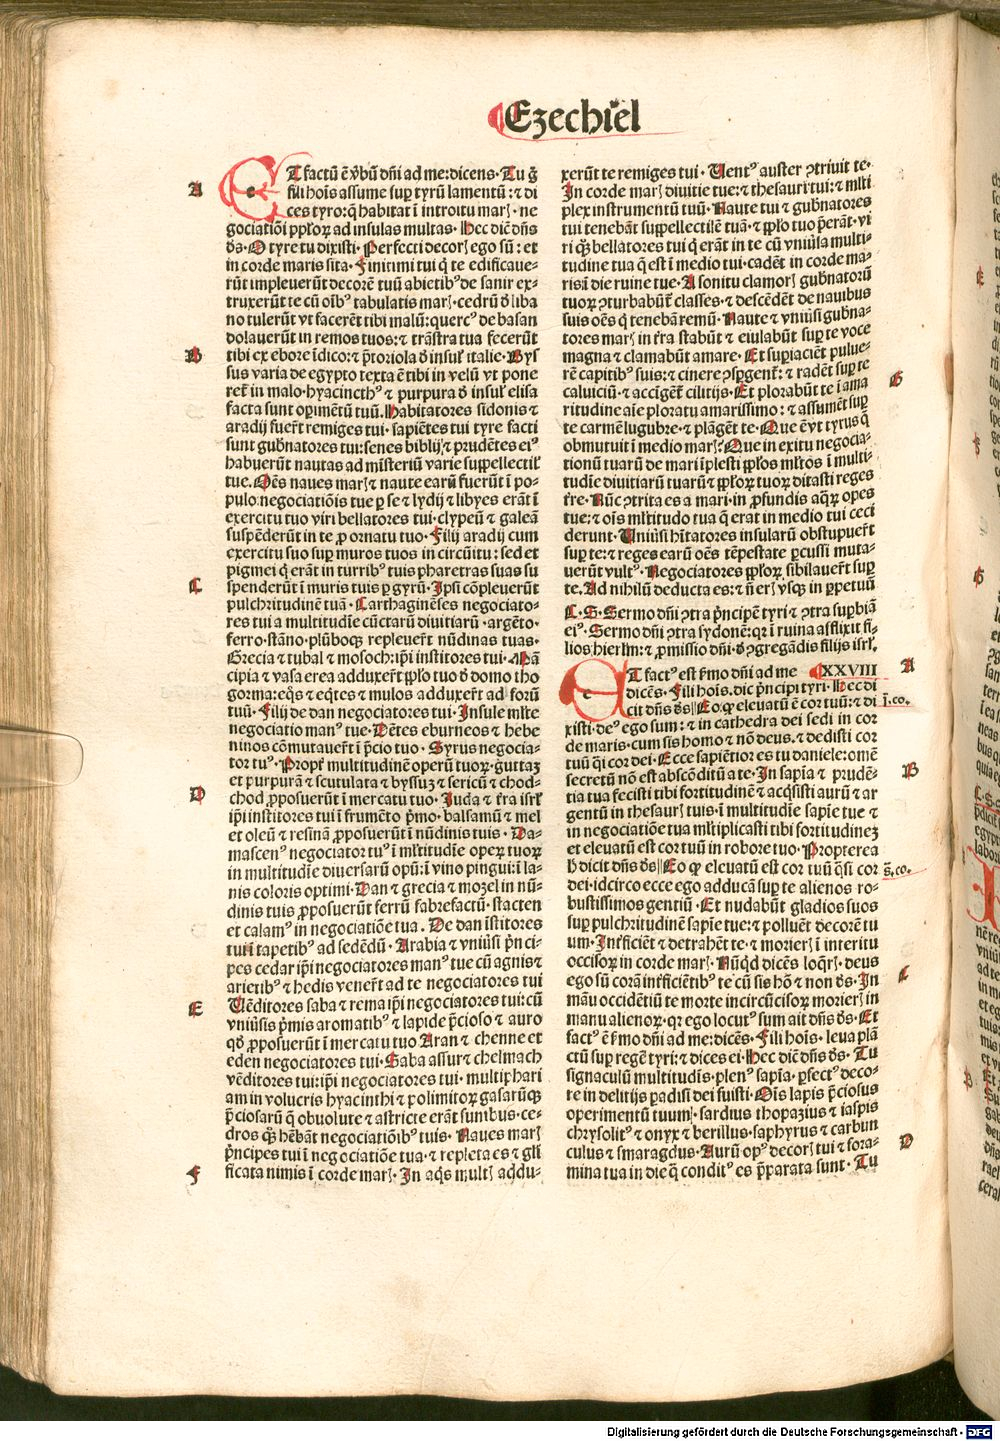 Ezechiel
ET factū ē v̄bū dn̄i ad me: dicens. Tu g̊
fili hoīs assume suꝑ tyrū lamentū: ⁊ di
ces tyro: q̄ habitat ī introitu marꝭ. ne
gociatiōi ppl̓oꝝ ad insulas multas. Hec diē dn̄s
ds̄. O tyre tu dixisti. Perfecti decorꝭ ego sū: et
in corde maris sita. Finitimi tui q̄ te edificaue-
rūt impleuerūt decorē tuū abietibꝰ de sanir ex-
truxerūt te cū oībꝰ tabulatis marꝭ. cedrū d̄ liba
no tulerūt vt facerēt tibi malū: quercꝰ de basan
dolauerūt in remos tuos: ⁊ trāstra tua fecerūt
tibi ex ebore īdico: ⁊ p̄toriola d̄ insul̓ italie. Bys
sus varia de egypto texta ē tibi in velū vt pone
ret̄ in malo. hyacincthꝰ ⁊ purpura d̄ insul̓ elisa
facta sunt oꝑimētū tuū. Habitatores sidonis ⁊
aradij fuer̄t remiges tui. sapiētes tui tyre facti
sunt gub̄natores tui: senes biblij ⁊ prudētes eiꝰ
habuerūt nautas ad mīsteriū varie supellectil̓
tue. Oēs naues marꝭ ⁊ naute earū fuerūt ī po-
pulo negociatiōis tue ꝑse ⁊ lydij ⁊ libyes erāt ī
exercitu tuo viri bellatores tui. clypeū ⁊ galeā
suspēderūt in te ꝓ ornatu tuo. Filij aradij cum
exercitu suo suꝑ muros tuos in circūitu: sed et
pigmei q̄ erāt in turribꝰ tuis pharetras suas su
spenderūt ī muris tuis ꝑ gyrū. Ipsi cōpleuerūt
pulchritudinē tuā. Carthaginēses negociato-
res tui a multitudīe cūctarū diuitiarū. argēto.
ferro. stāno. plūboqꝫ repleuer̄t nūdinas tuas.
Grecia ⁊ tubal ⁊ mosoch: ip̄i institores tui. Mā
cipia ⁊ vasa erea adduxer̄t ppl̓o tuo d̄ domo tho
gorma: eq̄s ⁊ eq̄tes ⁊ mulos adduxer̄t ad forū
tuū. Filij de dan negociatores tui. Insule ml̓te
negociatio manꝰ tue. Dētes eburneos ⁊ hebe
ninos cōmutauer̄t ī p̄cio tuo. Syrus negocia-
tor tuꝰ. Propt̄ multitudinē operū tuoꝝ. guttaꝫ
et purpurā ⁊ scutulata ⁊ byssuꝫ ⁊ sericū ⁊ chod-
chod ꝓposuerūt ī mercatu tuo. Juda ⁊ t̄ra isrl̓
ip̄i institores tui ī frumēto p̄mo. balsamū ⁊ mel
et oleū ⁊ resinā ꝓposuerūt ī nūdinis tuis. Da-
mascenꝰ negociator tuꝰ ī ml̓titudīe operꝝ tuoꝝ
in multitudīe diuersarū opū: ī vino pingui: ī la-
nis coloris optimi. Dan ⁊ grecia ⁊ mozel in nū-
dinis tuis ꝓposuerūt ferrū fabrefactū. stacten
et calamꝰ in negociatiōe tua. De dan īstitores
tui ī tapetibꝰ ad sedēdū. Arabia ⁊ vniūsi p̄nci-
pes cedar ip̄i negociatores manꝰ tue cū agnis ⁊
arietibꝰ ⁊ hedis vener̄t ad te negociatores tui
Uēditores saba ⁊ rema ip̄i negociatores tui: cū
vniūsis p̄mis aromatibꝰ ⁊ lapide p̄cioso ⁊ auro
qd̄ ꝓposuerūt ī mercatu tuo Aran ⁊ chenne et
eden negociatores tui. Saba assur ⁊ chelmach
vēditores tui: ip̄i negociatores tui. multiphari
am in volucris hyacinthi ⁊ polimitoꝝ gasarūqꝫ
p̄ciosarū q̄ obuolute ⁊ astricte erāt funibus. ce-
dros qꝫ hēbāt negociatiōibꝰ tuis. Naues marꝭ
p̄ncipes tui ī negociatiōe tua. ⁊ repleta es ⁊ gl̓i
ficata nimis ī corde marꝭ. In aq̄s multꝭ addu-
A
B
C
D
E
F
xerūt te remiges tui. Uentꝰ auster ꝯtriuit te.
In corde marꝭ diuitie tue: ⁊ thesauri tui: ⁊ ml̓ti
plex instrumentū tuū. Naute tui ⁊ gub̄natores
tui tenebāt supellectilē tuā. ⁊ ppl̓o tuo p̄erāt. vi
ri qꝫ bellatores tui q̄ erāt in te cū vniūsa multi-
tudine tua q̄ est ī medio tui. cadēt in corde ma-
ris ī die ruine tue. A sonitu clamorꝭ gub̄natorū
tuoꝝ ꝯturbabūt̄ classes. ⁊ descēdēt de nauibus
suis oēs q̄ tenebāt remū. Naute ⁊ vniūsi gub̄na-
tores marꝭ in t̄ra stabūt ⁊ eiulabūt suꝑ te voce
magna ⁊ clamabūt amare. Et suꝑiaciēt pulue-
rē capitibꝰ suis: ⁊ cinere ꝯsꝑgent̄: ⁊ radēt suꝑ te
caluiciū. ⁊ accīgēt̄ cilitijs. Et plorabūt te ī ama
ritudine aīe ploratu amarissimo: ⁊ assumēt suꝑ
te carmē lugubre. ⁊ plāgēt te. Que ē vt tyrus q̄
obmutuit ī medio marꝭ? Que in exitu negocia-
tionū tuarū de mari īplesti ppl̓os ml̓tos ī multi-
tudīe diuitiarū tuarū ⁊ ppl̓oꝝ tuoꝝ ditasti reges
t̄re. Nūc ꝯtrita es a mari. in ꝓfundis aq̄ꝝ opes
tue: ⁊ oīs ml̓titudo tua q̄ erat in medio tui ceci
derunt. Uniūsi hītatores insularū obstupuer̄t
suꝑ te: ⁊ reges earū oēs tēpestate ꝑcussi muta-
uerūt vultꝰ. Negociatores ppl̓oꝝ sibilauer̄t suꝑ
te. Ad nihilū deducta es: ⁊ nō erꝭ vsqꝫ in ꝑpetuū
C. S. Sermo dn̄i ꝯtra p̄ncipē tyri ⁊ ꝯtra suꝑbiā
eiꝰ. Sermo dn̄i ꝯtra sydonē: qꝛ ī ruina afflixit fi-
lios hierl̓m: ⁊ ꝓmissio dn̄i. d̄ ꝯgregādis filijs isrl̓.
ET factꝰ est s̄mo dn̄i ad me XXVIII
dicēs. Fili hoīs. dic p̄ncipi tyri. Hec di
cit dn̄s ds̄ Eo ꝙ eleuatū ē cor tuū: ⁊ di
xisti. deꝰ ego sum: ⁊ in cathedra dei sedi in cor
de maris. cum sis homo ⁊ nō deus. ⁊ dedisti cor
tuū q̄si cor dei. Ecce sapiētior es tu daniele: omē
secretū nō est abscōditū a te. In sapīa ⁊ prudē-
tia tua fecisti tibi fortitudinē ⁊ acq̄sisti aurū ⁊ ar
gentū in thesaurꝭ tuis. ī multitudīe sapīe tue ⁊
in negociatiōe tua ml̓tiplicasti tibi fortitudineꝫ
et eleuatū est cor tuū in robore tuo. Propterea
h̄ dicit dn̄s ds̄ Eo ꝙ eleuatū est cor tuū q̄si cor
dei. idcirco ecce ego adducā suꝑ te alienos ro-
bustissimos gentiū. Et nudabūt gladios suos
suꝑ pulchritudinē sapīe tue: ⁊ polluēt decorē tu
um. Int̄ficiēt ⁊ detrahēt te. ⁊ morierꝭ ī interitu
occisoꝝ in corde marꝭ. Nūqd̄ dicēs loq̄rꝭ. deus
ego sū corā int̄ficiētibꝰ te cū sis hō ⁊ non ds̄. In
māu occidētiū te morte incircūcisoꝝ morierꝭ in
manu alienoꝝ. qꝛ ego locutꝰ sum ait dn̄s ds̄. Et
factꝰ ē s̄mo dn̄i ad me: dicēs. Fili hoīs. leua plā
ctū suꝑ regē tyri: ⁊ dices ei. Hec diē dn̄s ds̄. Tu
signaculū multitudīs. plenꝰ sapīa. ꝑfectꝰ deco-
re in delitijs ꝑadisi dei fuisti. Oīs lapis p̄ciosus
operimentū tuum. sardius thopazius ⁊ iaspis
chrysolitꝰ ⁊ onyx ⁊ berillus. saphyrus ⁊ carbun
culus ⁊ smaragdus. Aurū opꝰ decorꝭ tui ⁊ fora-
mina tua in die q̄ conditꝰ es p̄parata sunt. Tu
G
A
j. co.
B
s̄. co.
C
D
Digitalisierung gefördert durch die Deutsche Forschungsgemeinschaft - DFG